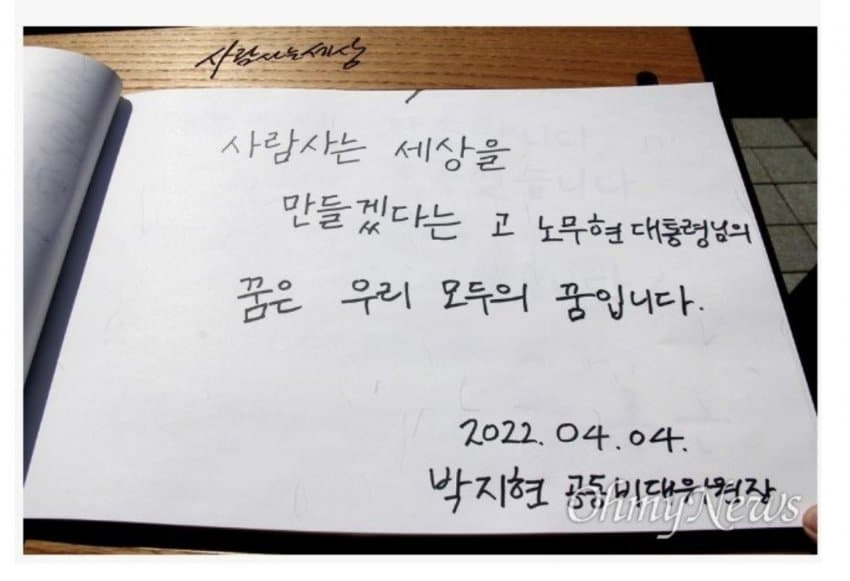 사람사는세상
사람사는 세상을
만들겠다는 고 노무현 대통령님의
꿈은 우리 모두의 꿈입니다.
2022. 04. 04.
박지현 공동비대위원장
OhmyNews